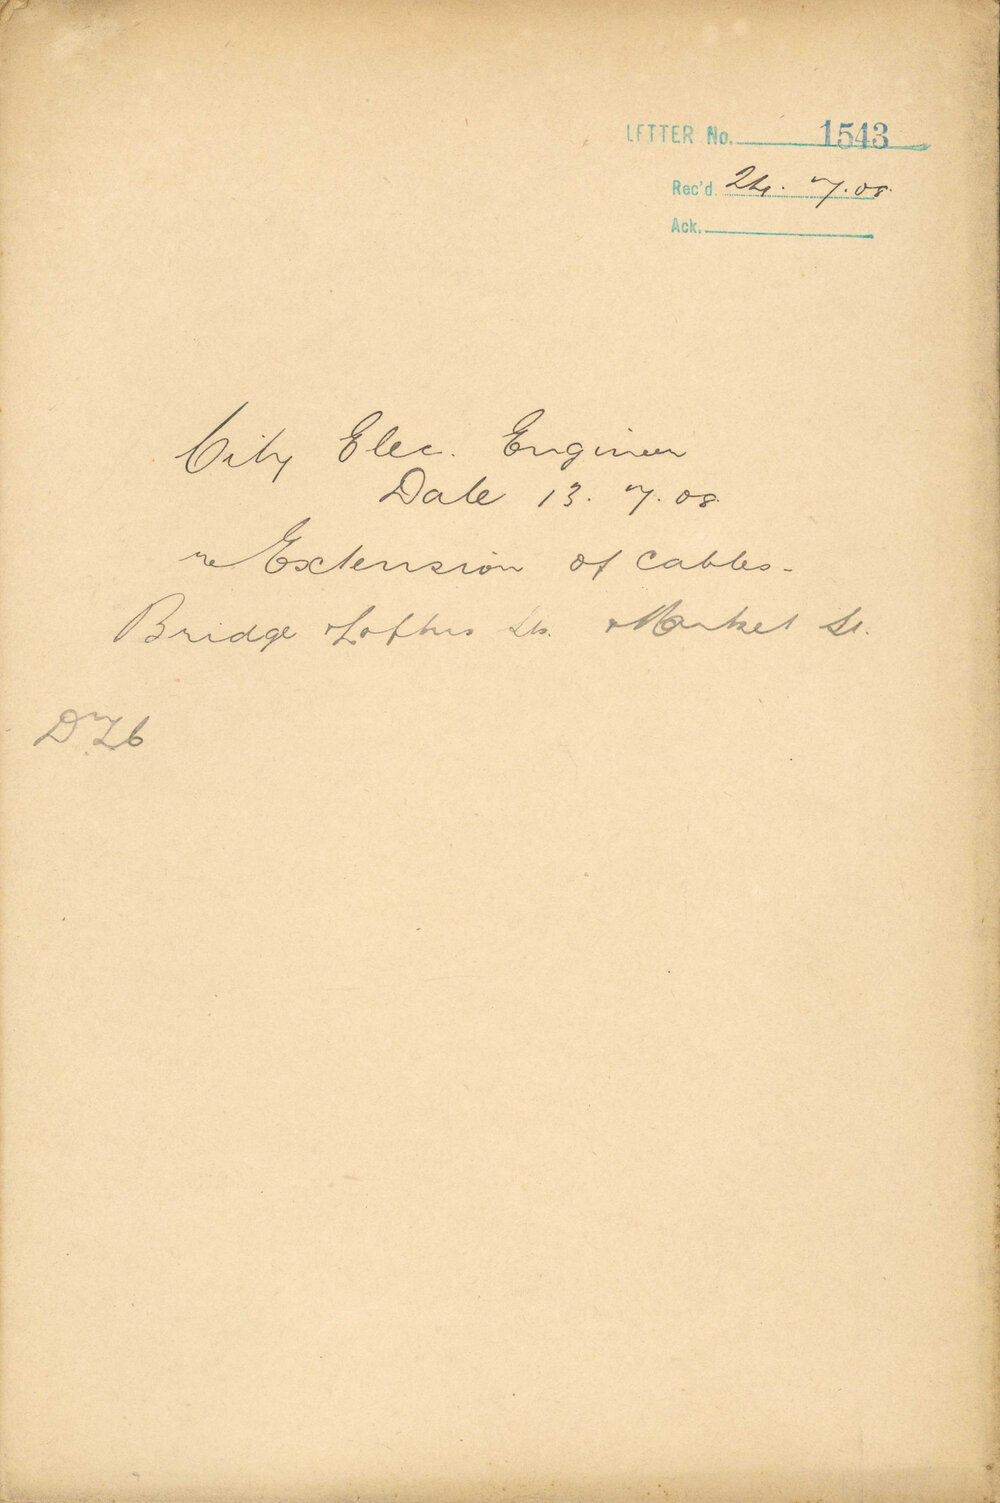 LETTER No. 1543
Rec'd 24. 7. 08.
Ack.
City Elec. Engineer
Date 13. 7. 08.
re Extension of cables -
Bridge & Loftus Sts. & Market St.